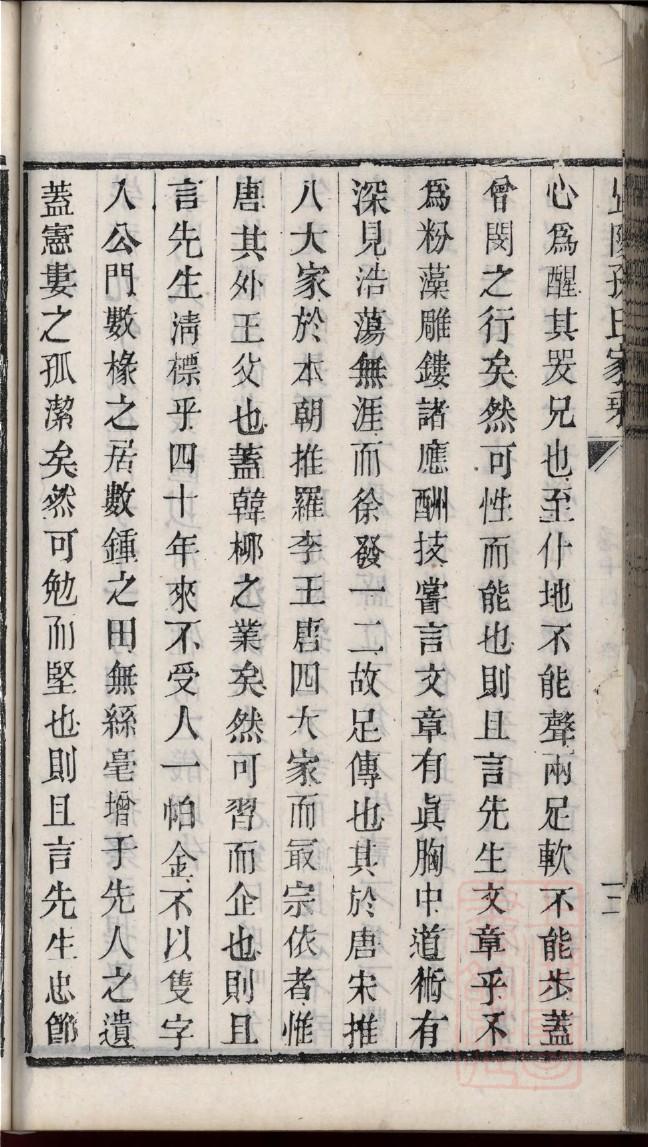 孫氏家乘
二
心為醒其哭兄也至仆地不能聲兩足軟不能步蓋
曾閔之行矣然可性而能也則且言先生文章乎不
為粉藻雕鏤諸應酬技嘗言文章有眞胸中道術有
深見浩蕩無涯而徐發一二故足傳也其於唐宋推
八大家於本朝推羅李王唐四大家而最宗依者惟
唐其外王父也蓋韓柳之業矣然可習而企也則且
言先生清標乎四十年來不受人一帕金不以隻字
入公門數椽之居數鍾之田無絲毫增于先人之遺
蓋憲婁之孤潔矣然可勉而堅也則且言先生忠節